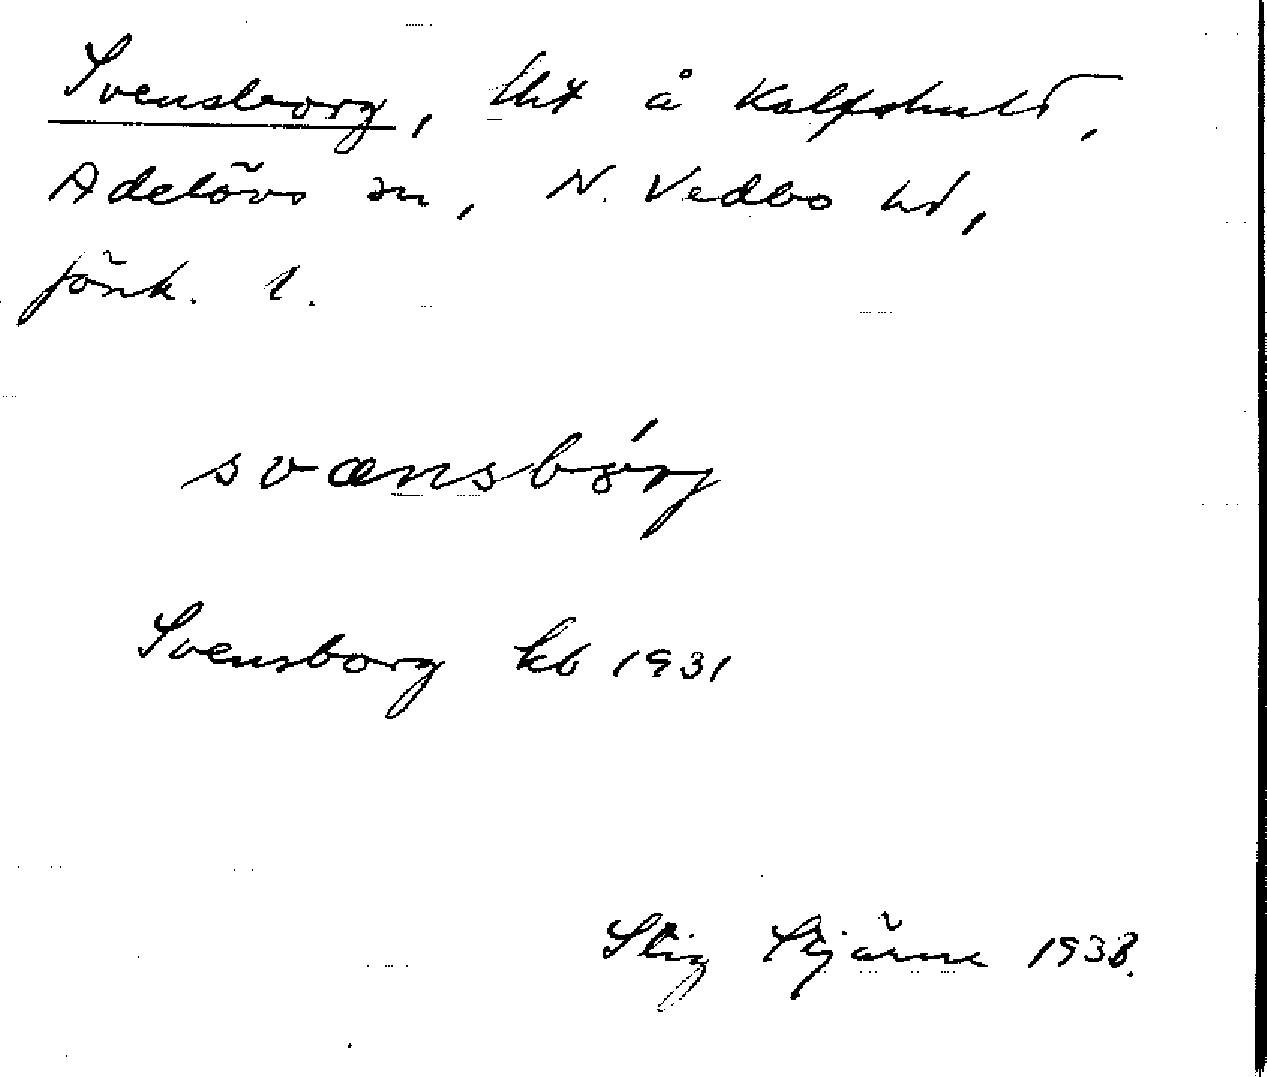 Svensborg, lht å Kalfshult,
Adelövs sn, N. Vedbo hd,
Jönk. l.
svænsbórj
Svensborg kb 1931
Stig Stjärne 1938.